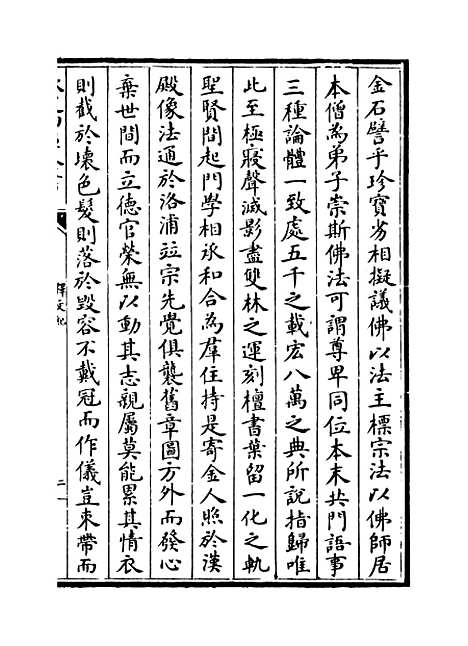 金石譬乎珍寶劣相擬議佛以法主標宗法以佛師居
本僧為弟子崇斯佛法可謂尊卑同位本末共門語事
三種論體一致處五千之載宏八萬之典所說指歸唯
此至極寢聲滅影盡雙林之運刻檀書葉留一化之軌
聖賢間起門學相承和合為羣住持是寄金人照於漢
殿像法通於洛浦竝宗先覺俱襲舊章圖方外而發心
棄世間而立德官榮無以動其志親屬莫能累其情衣
則截於壞色髮則落於毀容不戴冠而作儀豈束帶而
釋文紀